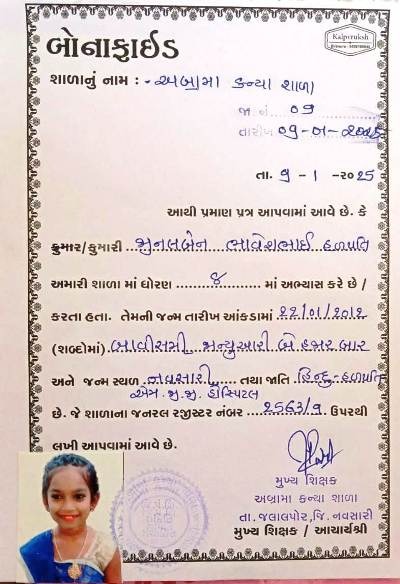 Kalpvruksh
બોનાફાઈડ
શાળાનું નામ : - અબ્રામા કન્યા શાળા
જા. નં. ૦૭
તારીખ ૦૭-૦૧-૨૦૨૫
તા. ૭ - ૧ - ૨૦૨૫
આથી પ્રમાણ પત્ર આપવામાં આવે છે. કે
કુમાર/કુમારી મુનલબેન ભાવેશભાઈ હળપતિ
અમારી શાળા માં ધોરણ ૪ માં અભ્યાસ કરે છે /
કરતા હતા. તેમની જન્મ તારીખ આંકડામાં ૨૨/૦૧/૨૦૧૨
(શબ્દોમાં) બાવીસમી જાન્યુઆરી બે હજાર બાર
અને જન્મ સ્થળ નવસારી તથા જાતિ હિન્દુ-હળપતિ
એમ.જી.જી. હોસ્પિટલ
છે. જે શાળાના જનરલ રજીસ્ટર નંબર ૨૫૬૩/૧ ઉપરથી
લખી આપવામાં આવે છે.
મુખ્ય શિક્ષક
અબ્રામા કન્યા શાળા
તા.જલાલપોર, જિ.નવસારી
મુખ્ય શિક્ષક / આચાર્યશ્રી